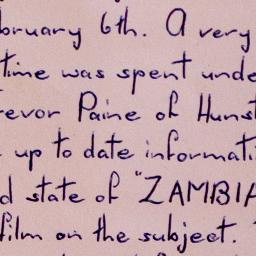 bruary 6th. A very
time was spent unde
revor Paine of Hunst
up to date informati
d state of "ZAMBIA
film on the subject.